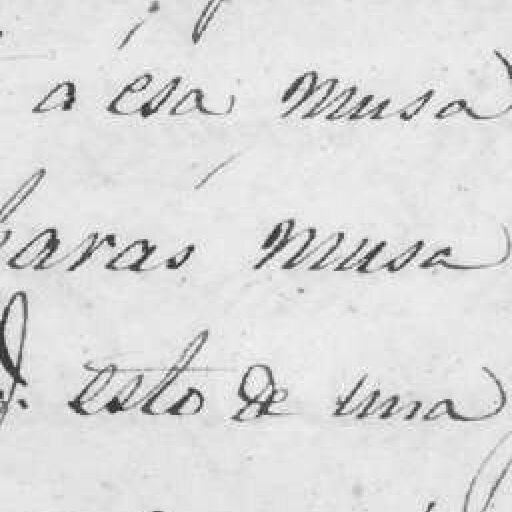 a esa musa
barás musa
esto de una